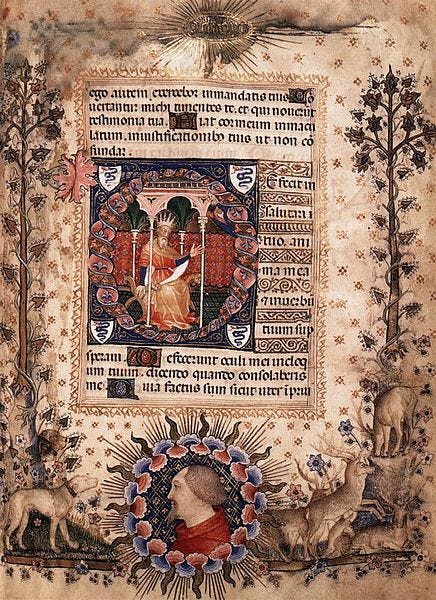 ego autem exercebor inmandatis tuis Co
uertantur michi timentes te et qui nouerūt
testimonia tua. Fiat cor meum inmacu
latum iniustificationibꝰ tuis ut non cō
fundar.
Defecit in
salutari
tuo, ani
ma mea
uerbū
tuum sup
speraui. Defecerunt oculi mei ineloq
uium tuum dicentes quando consolaberis
me. Quia factus sum sicut uter